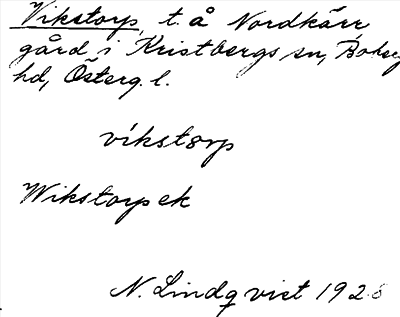 Vikstorp, t. å Nordkärr
gård i Kristbergs sn, Bobergs
hd, Österg. l.
víkstorp
Wikstorp ek
N. Lindqvist 1928